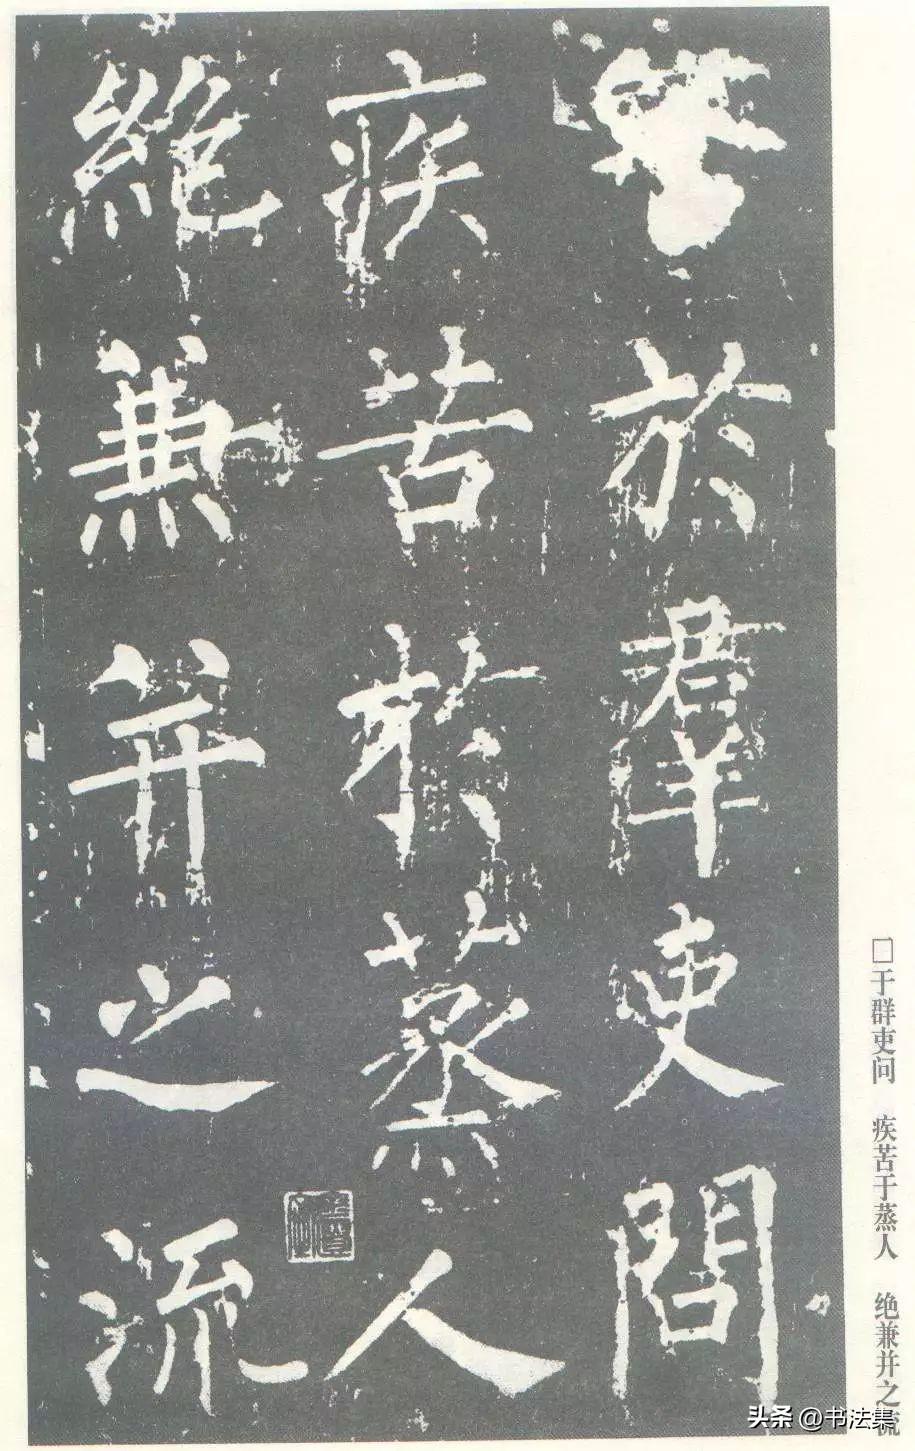 於羣吏問
疾苦於蒸人
絶兼并之流
□于群吏问 疾苦于蒸人 绝兼并之流
头条 @书法集